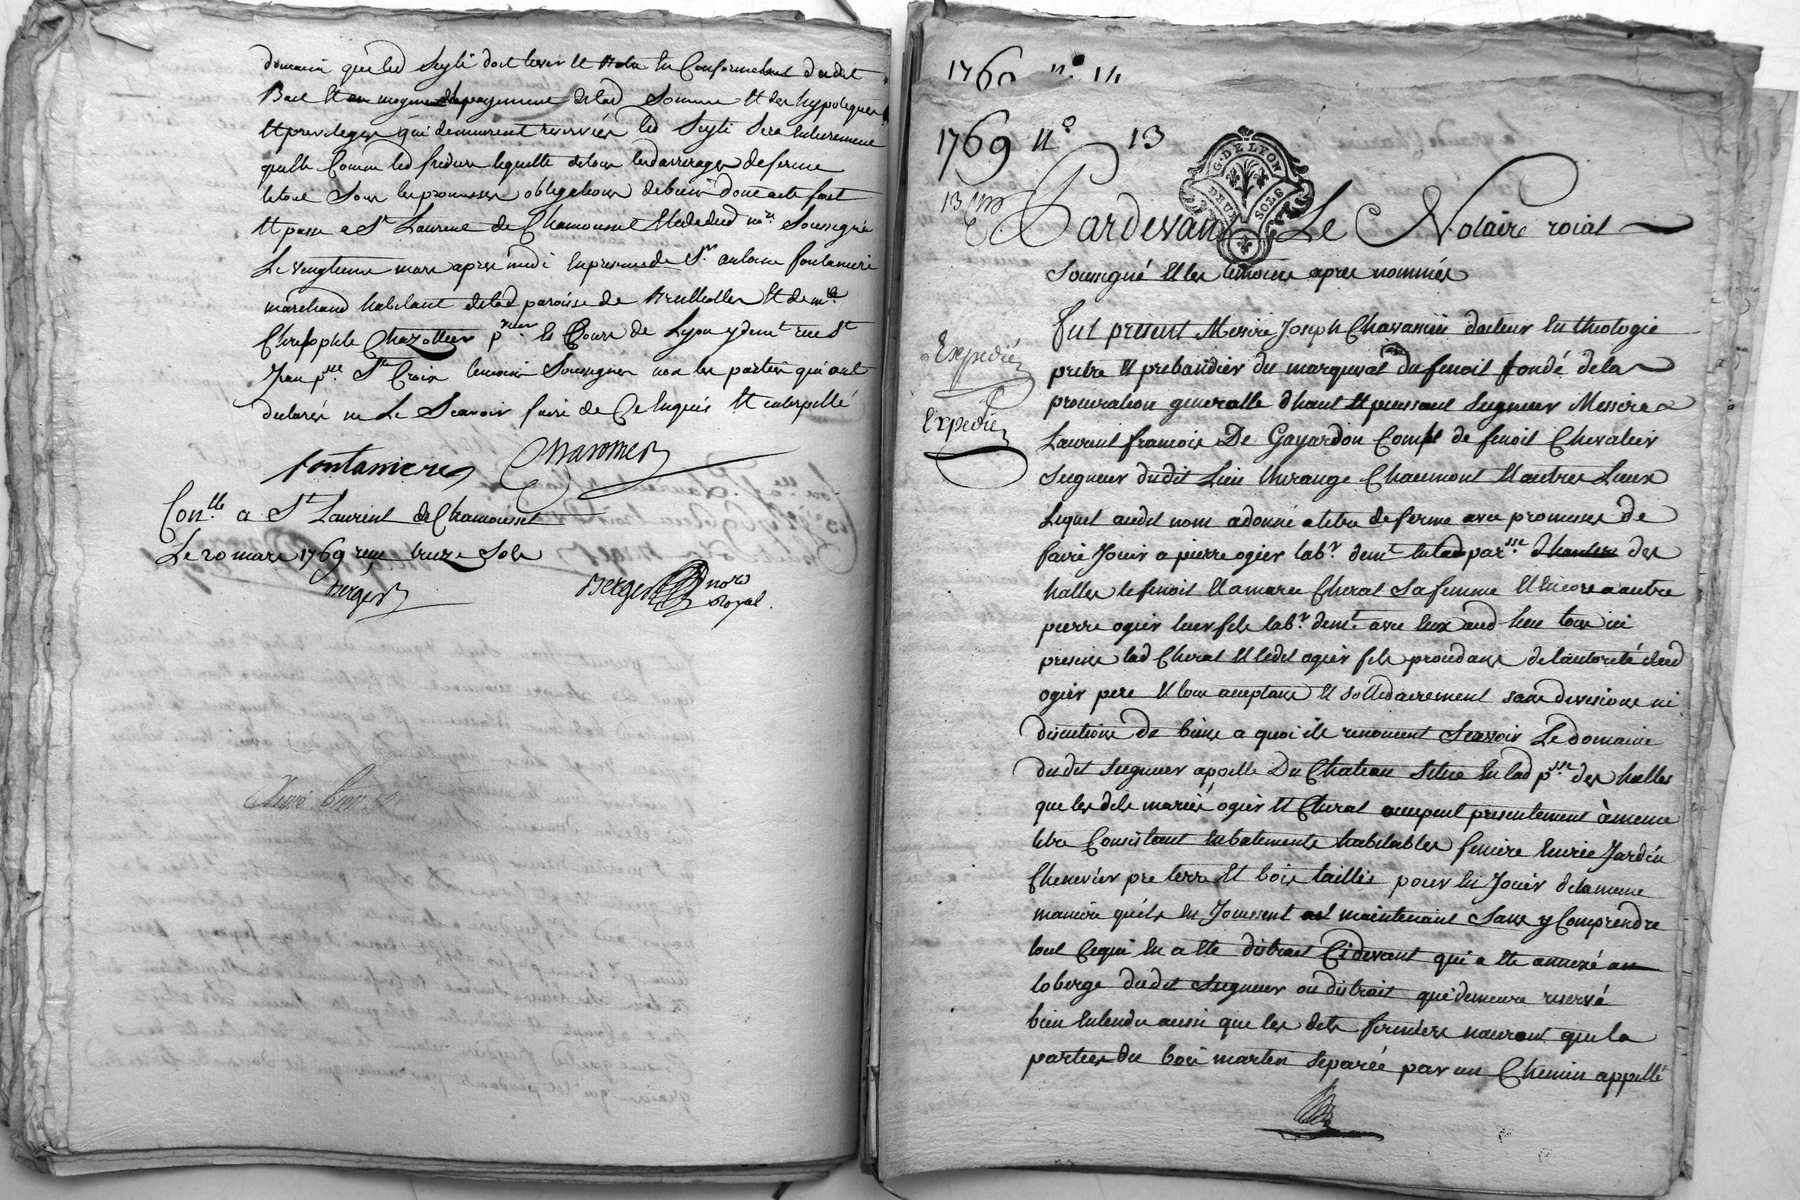 domaine que led Seyti doit lever et Rotu en Conformement dudit
Bail et au moyen du payement delad Somme et des hypoteques
et privileges qui demeurent reservés led Seyti sera entierement
quitte Comme led fredure lequitte de tous les darrerages de ferme
le tout Sous les promesses obligations de biens dont acte fait
et passé a St Laurent de Chamousset Etude dud nre Soussigné
Le vengtieme mars apres midi en presence de Sr antoine fontaniere
marchand habitant de lad paroisse de Brulliolles et de me
Christophle Chazottier pr en la Cours de Lyon y demt rue St
Jean psse Ste Croix temoins Soussignes non les parties qui ont
declarés ne Le Scavoir faire de Ce enquis et interpellé
fontaniere Chazottier
Con.lle a St Laurent de Chamousset
Le 20 mars 1769 reçu treize Sols
Berger
Berger nore Royal.
1769 n.o 14
1769 n.o 13
G. DE LYON
DEUX SOLS
13 mrs
Pardevant Le Notaire roial
soussigné et les temoins apres nommés
Expedié
Expedié
fut present Messire Joseph Chavassieu docteur en theologie
pretre et prebandier du marquisat du fenoil fondé de la
procuration generalle d'haut et puissant seigneur Messire
Laurent francois De Gayardon Compte de fenoil Chevalier
seigneur dudit Lieu thurange Chaumont et autres Lieux
Lequel audit nom a donné a titre de ferme avec promesses de
faire Jouir a pierre ogier labr demt en lad parsse des
halles le fenoil et a marie Cherat sa femme et encore a autre
pierre ogier leur fils labr demt avec eux aud lieu tous ici
presens lad Cherat et ledit ogier fils procedans de l'autorité dud
ogier pere et tous acceptans et sollidairement sans divisions ni
discutions de biens a quoi ils renoncent Scavoir Le domaine
dudit seigneur appellé Du Chateau situé en lad psse des halles
que les dits mariés ogier et Cherat occupent presentement à meme
titre Consistant en batements habitables feniere Ecurie Jardin
Chenevier pré terre et bois taillis pour en Jouir de la meme
maniere qu'ils en Jouissent maintenant Sans y Comprendre
tout Ce qui en a eté distrait Cidevant qui a eté annexé au
loberge dudit seigneur ou distrait qui demeure reservé
bien entendu aussi que les dits fermiers nauront que la
parties du bois marten separée par un Chemin appellé